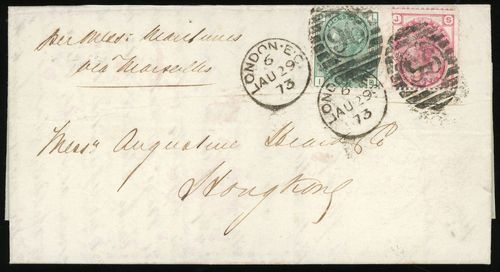 per Mess: Maritimes
via Marseilles
LONDON·E.C
6
AU 29
73
LOND
6
AU 29
73
96
96
J S
Messrs Augustine Heard & Co
Hong Kong